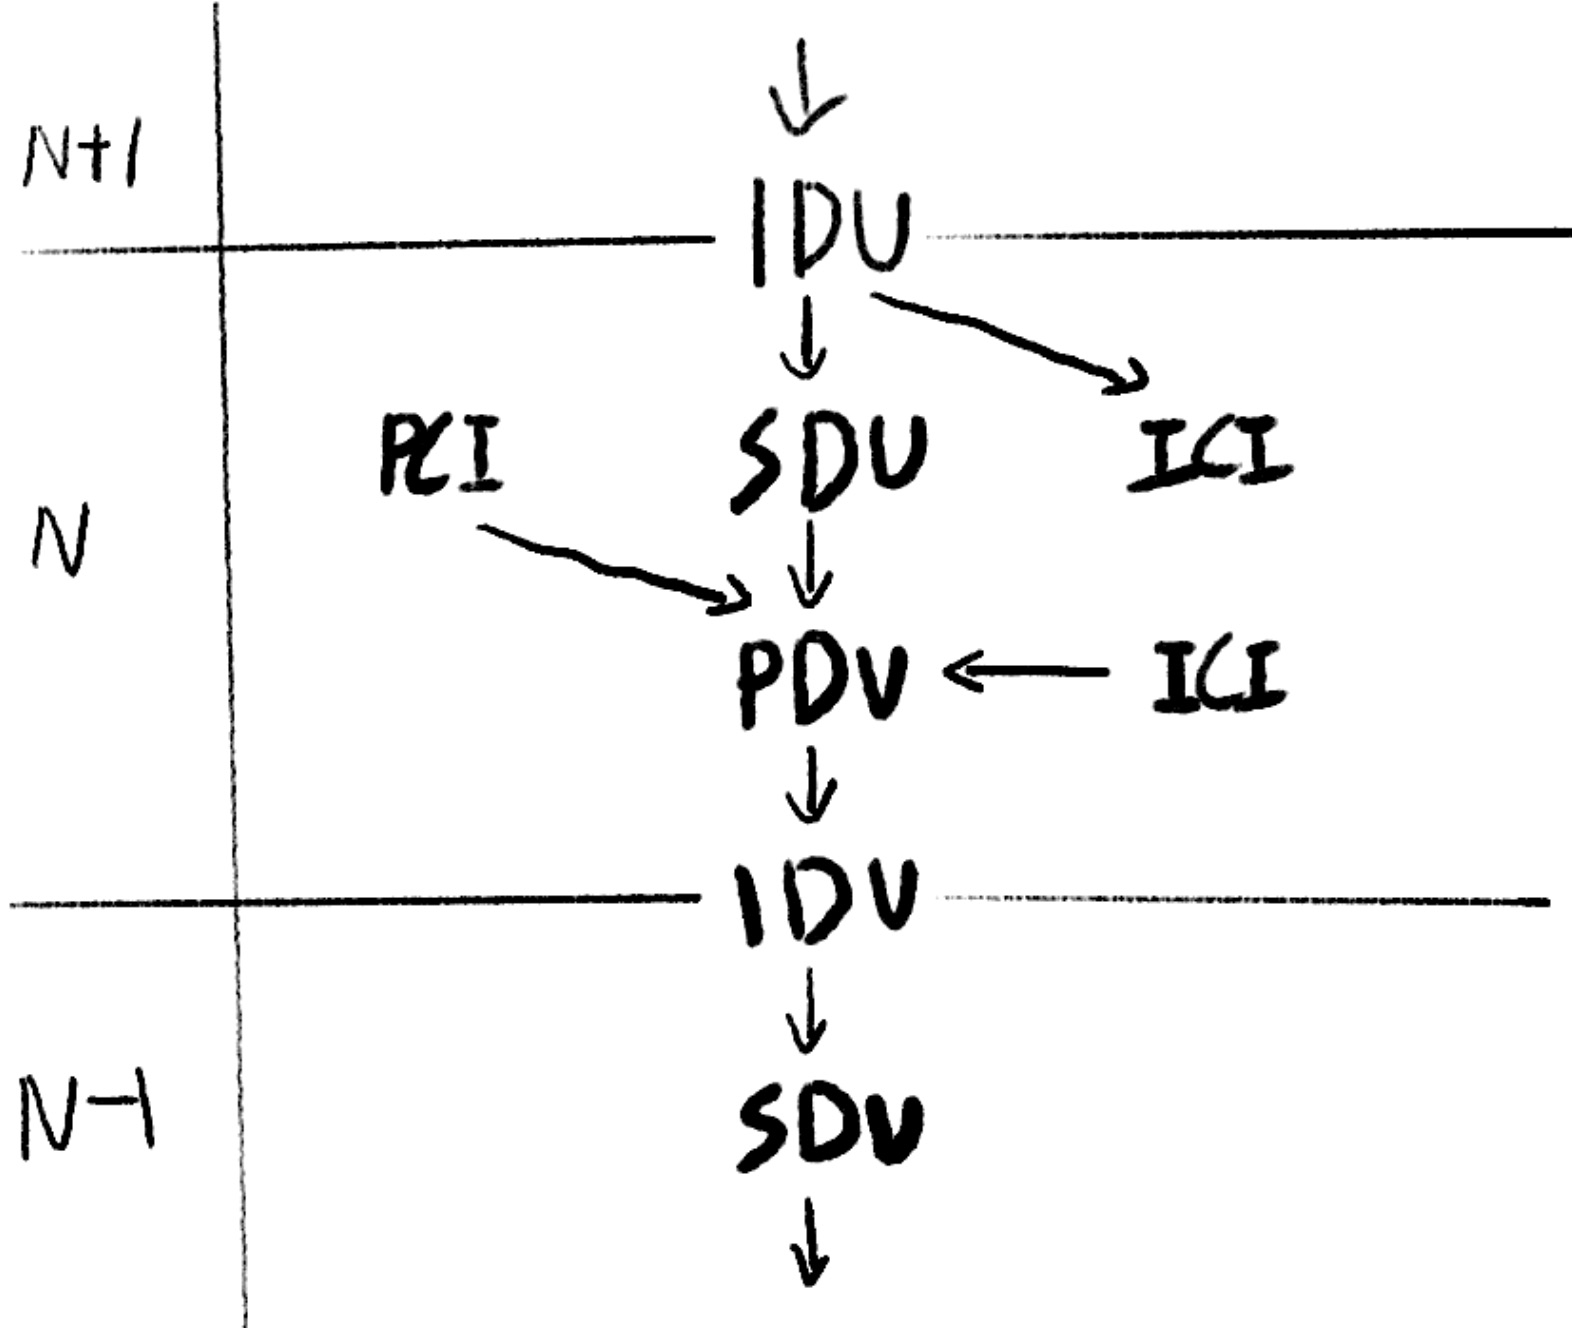 N+1
IDU
PCI SDU ICI
N
PDU ICI
IDU
N-1
SDU